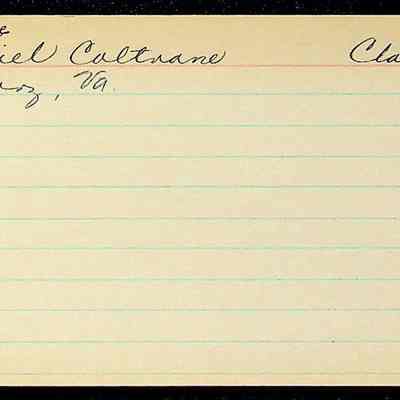 iel Coltrane Cla
Va.